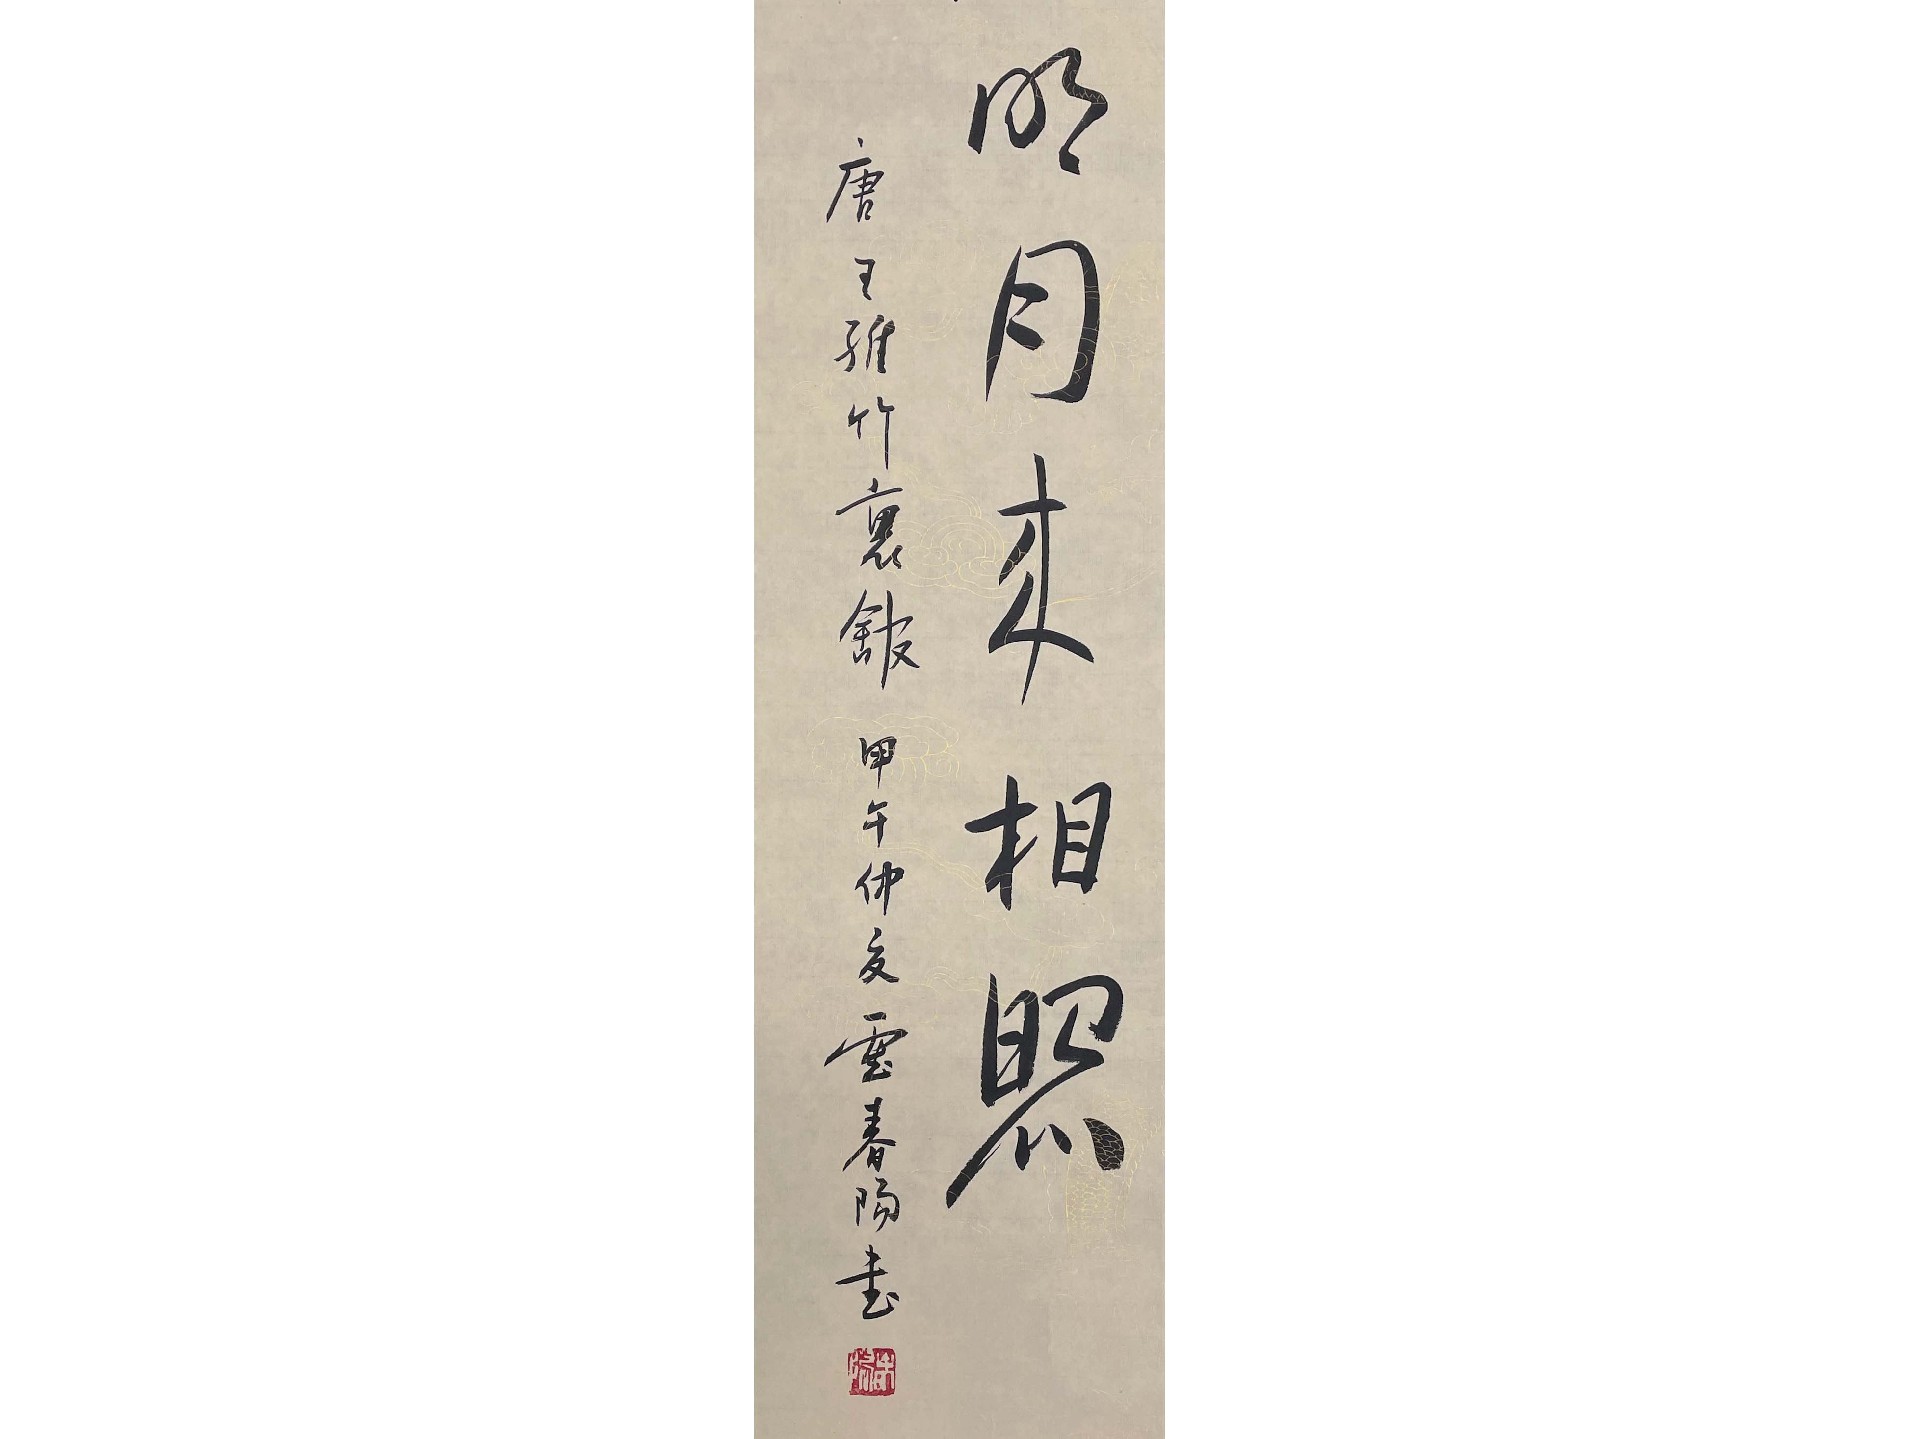 明月来相照
唐王維竹裏館 甲午仲夏 雲春陽書